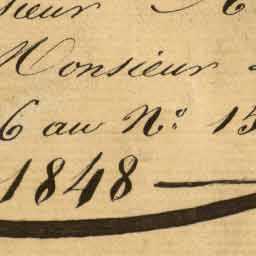 sieur
Monsieur
6 au N.º 15
1848 —